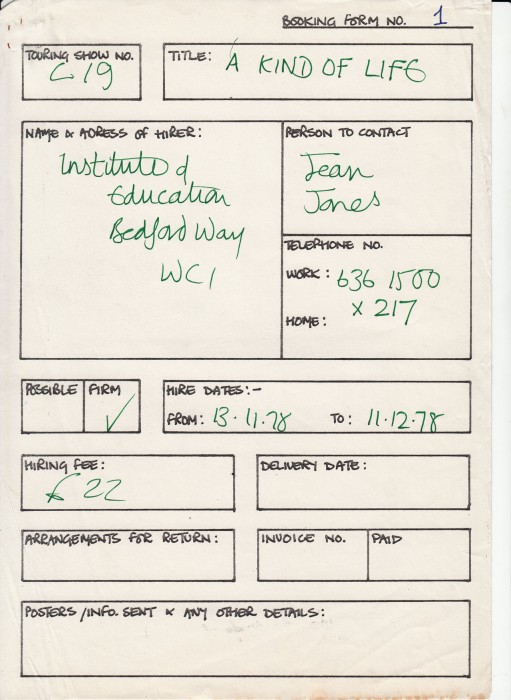 BOOKING FORM NO. 1
TOURING SHOW NO.
C 19
TITLE: A KIND OF LIFE
NAME & ADRESS OF HIRER:
Institute of
Education
Bedford Way
WC1
PERSON TO CONTACT
Jean
Jones
TELEPHONE NO.
WORK: 636 1500
x 217
HOME:
POSSIBLE FIRM
✓
HIRE DATES:-
FROM: 13.11.78 TO: 11.12.78
HIRING FEE:
£22
DELIVERY DATE:
ARRANGEMENTS FOR RETURN:
INVOICE NO. PAID
POSTERS/INFO. SENT & ANY OTHER DETAILS: